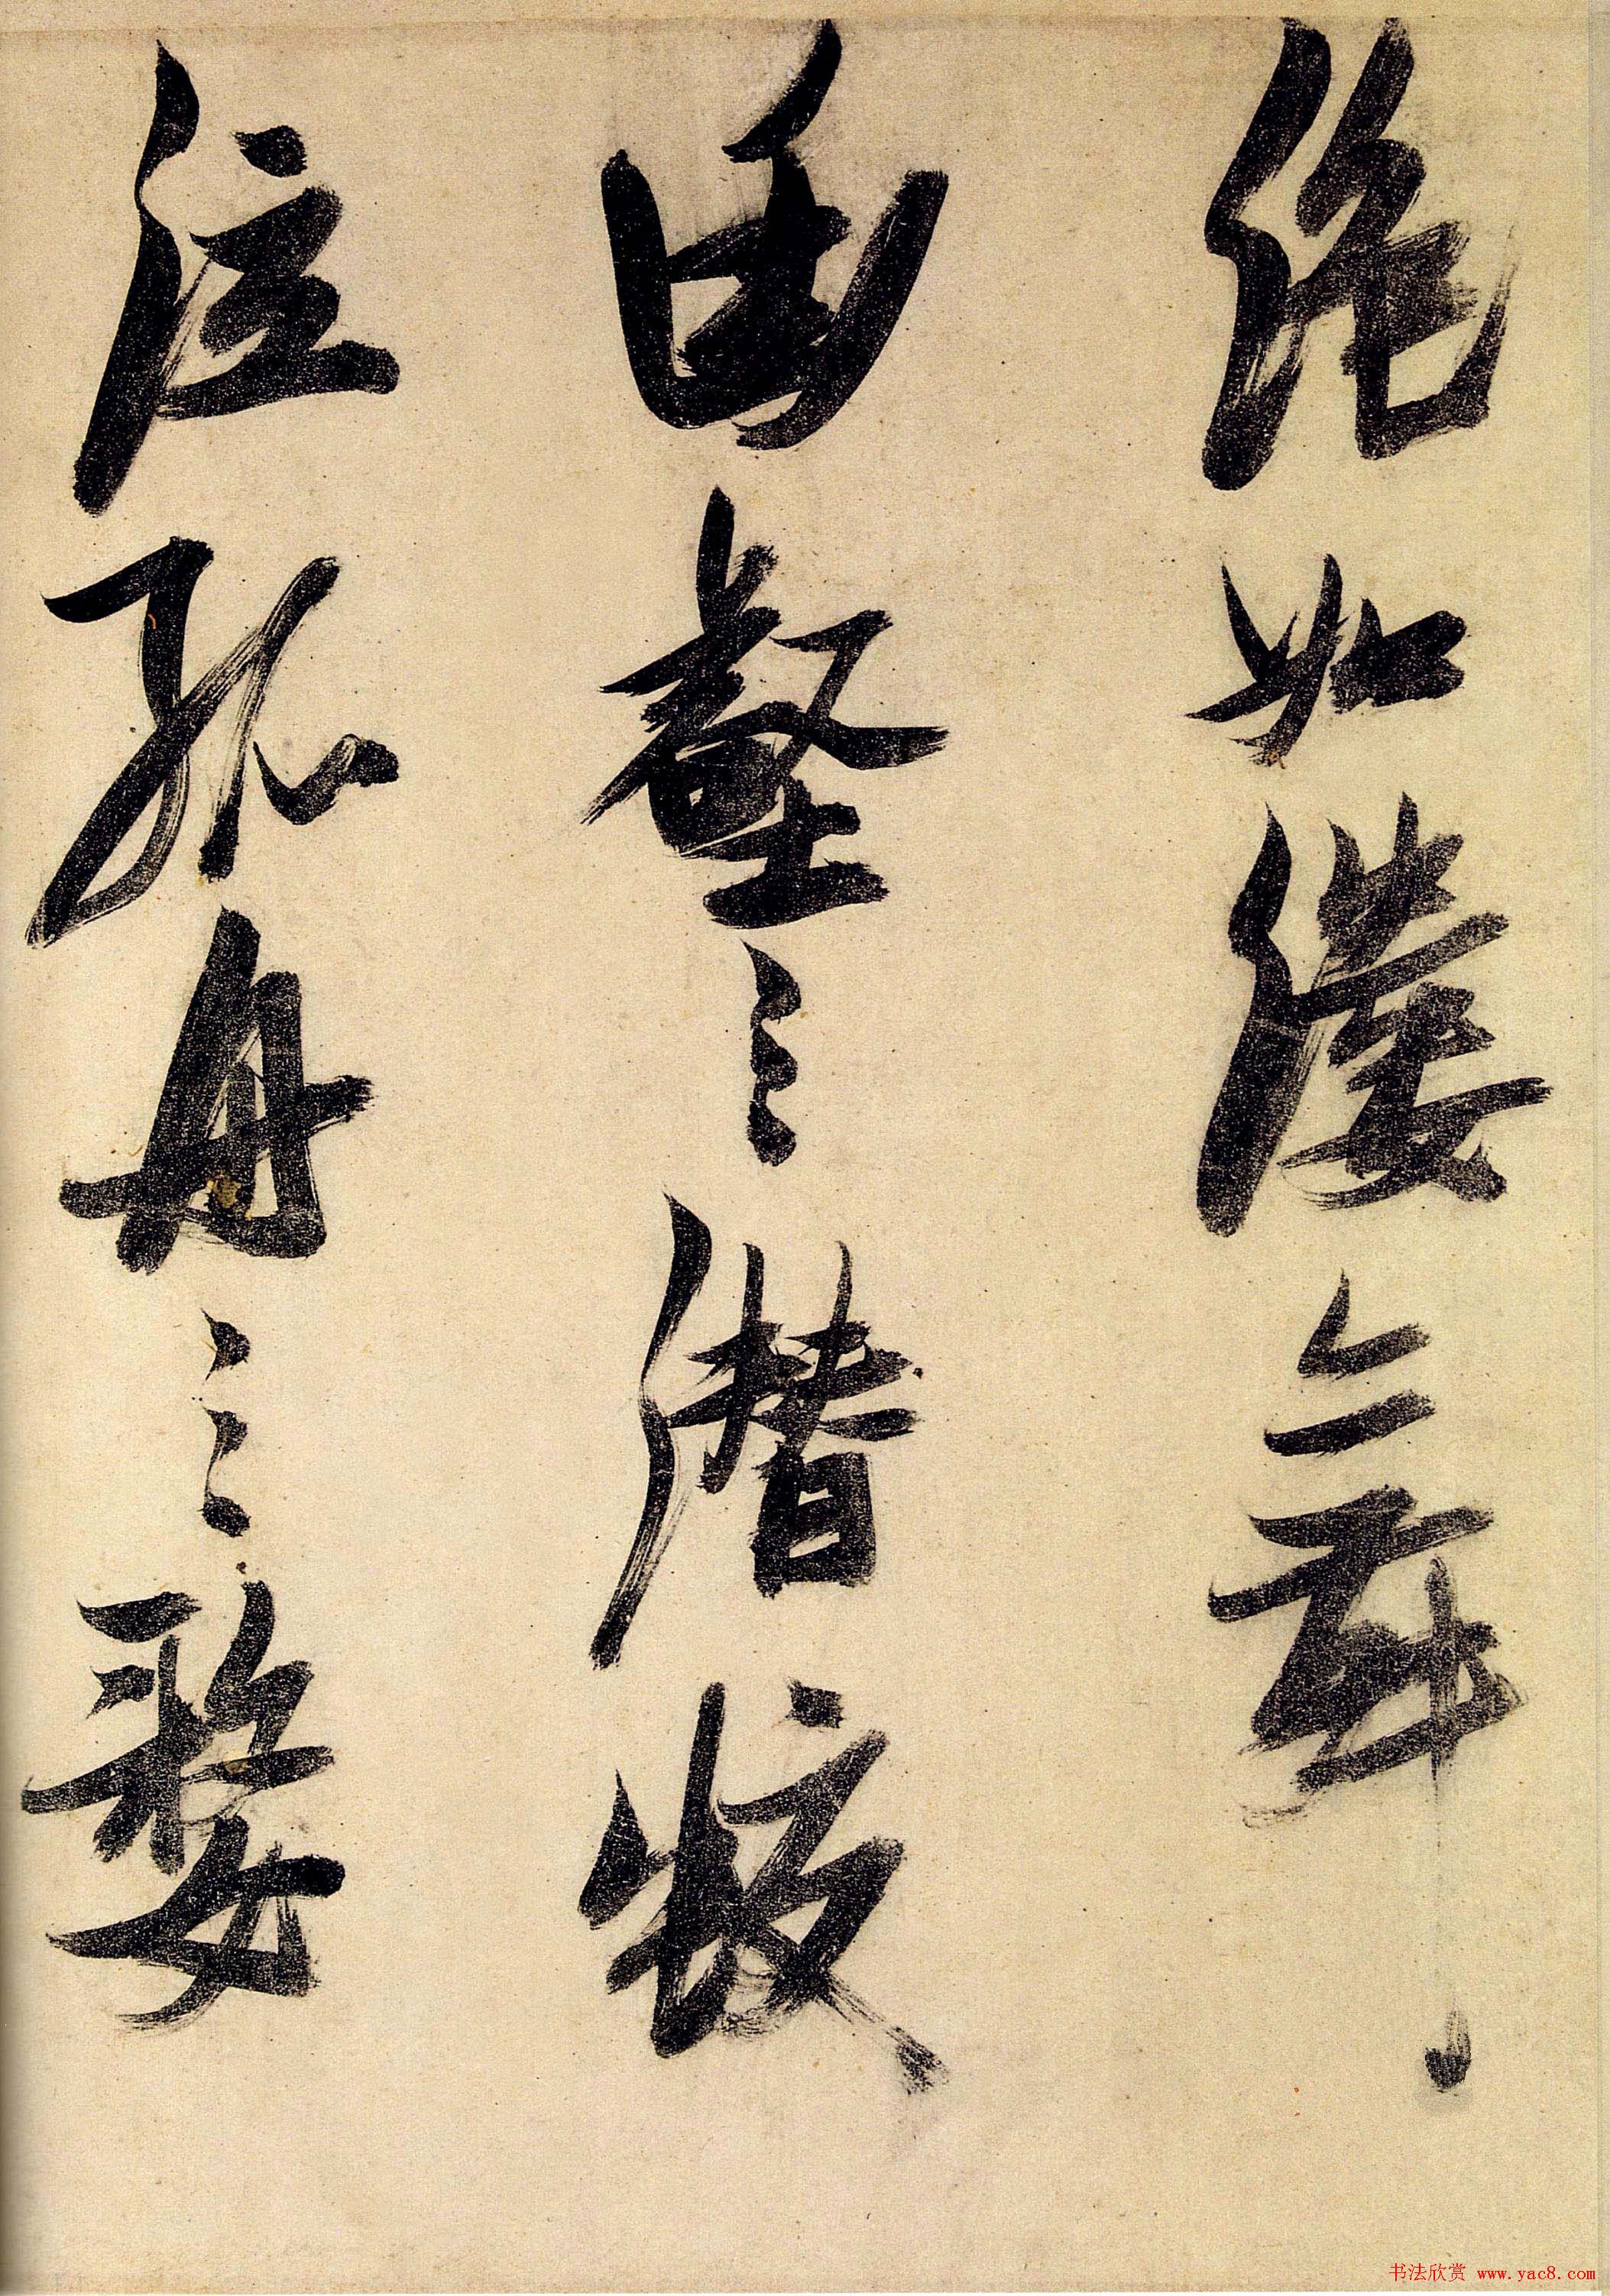 绝如缕㒇舞
幽壑之潜蛟
泣孤舟之嫠
书法欣赏 www.yac8.com